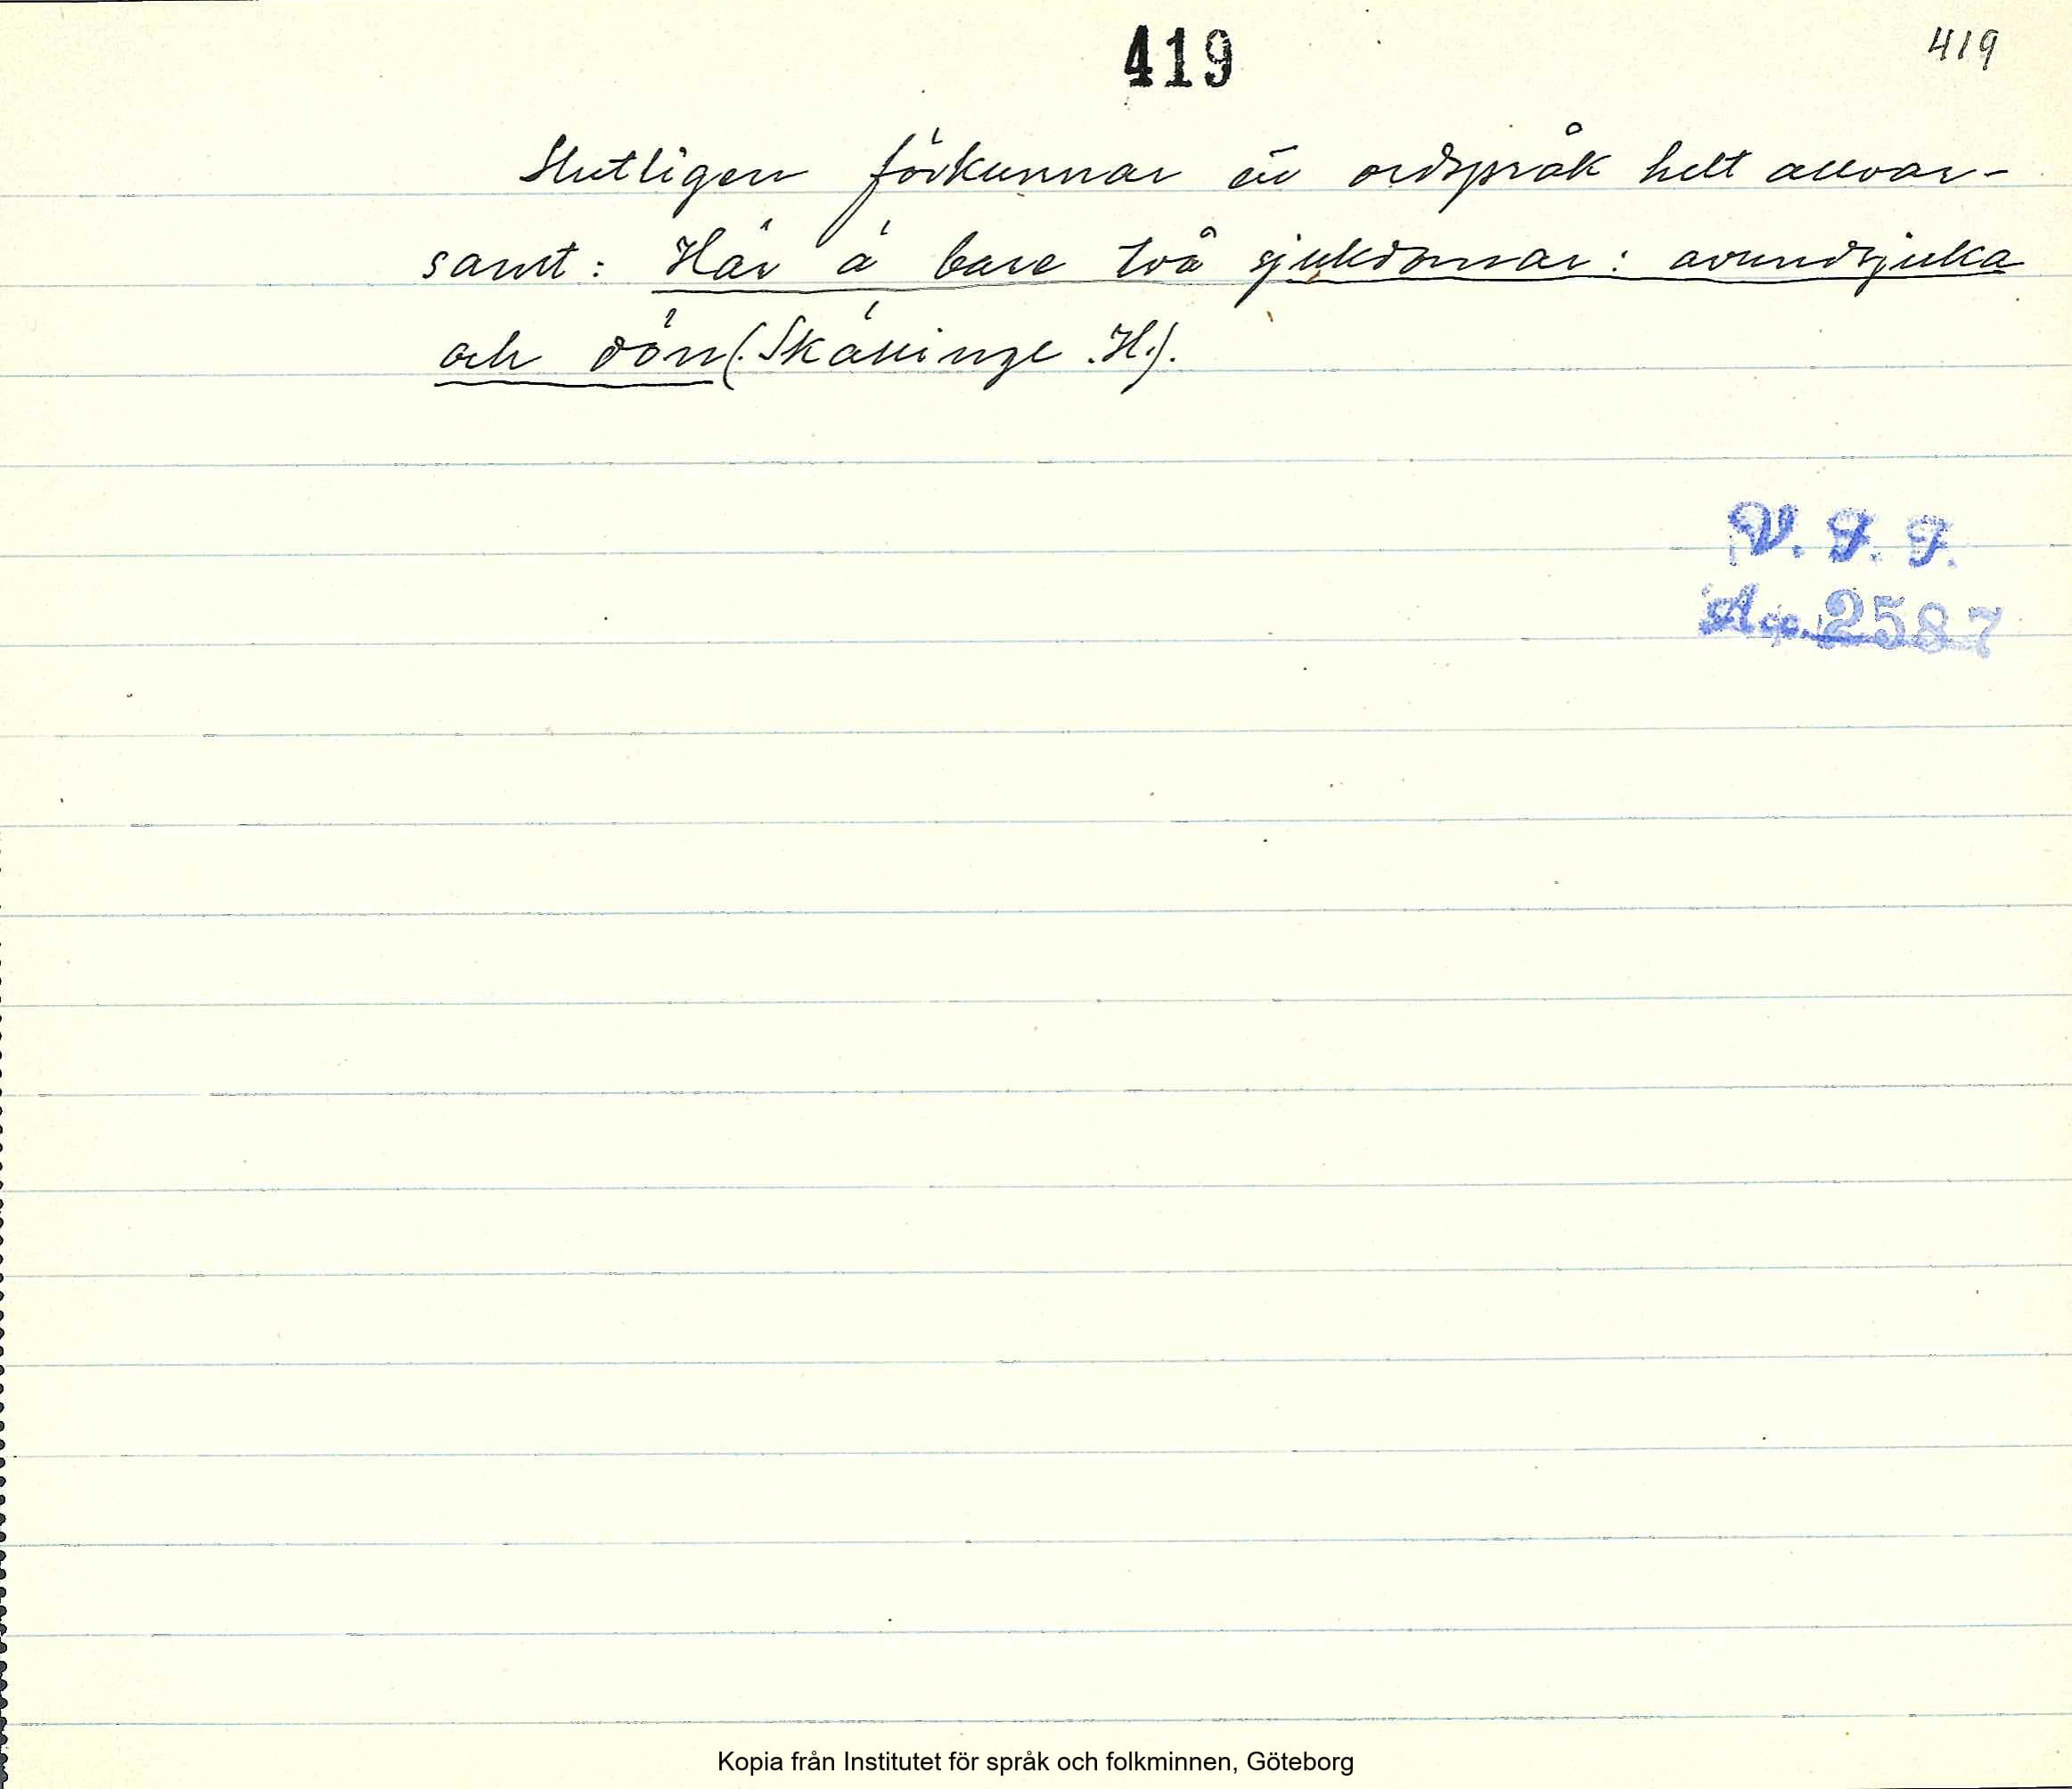 419
419
Slutligen förkunnar ett ordspråk helt allvar-
samt: Här ä bare två sjukdomar: avundsjuka
och dön (Skällinge H.).
V. F. F.
Acc. 2587
Kopia från Institutet för språk och folkminnen, Göteborg